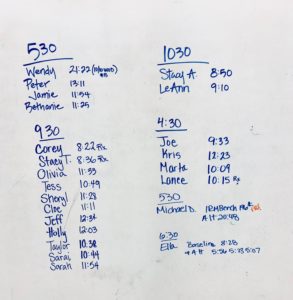 530
Wendy 21:22
Peter 13:11
Jamie 11:54
Bethanie 11:25
930
Corey 8:22 Rx
Stacy T. 8:36 Rx
Olivia 11:33
Jess 10:49
Sheryl 11:28
Cloe 11:11
Jeff 12:34
Holly 12:03
Taylor 10:38
Sarai 10:44
Sarah 11:54
1030
Stacy A. 8:50
LeAnn 9:10
4:30
Joe 9:33
Kris 12:23
Marta 10:09
Lance 10:15 Rx
530
Michael D. 1RM Bench
AH 20:48
6:30
Ella Baseline 8:28
AH 5:36 5:28 5:07